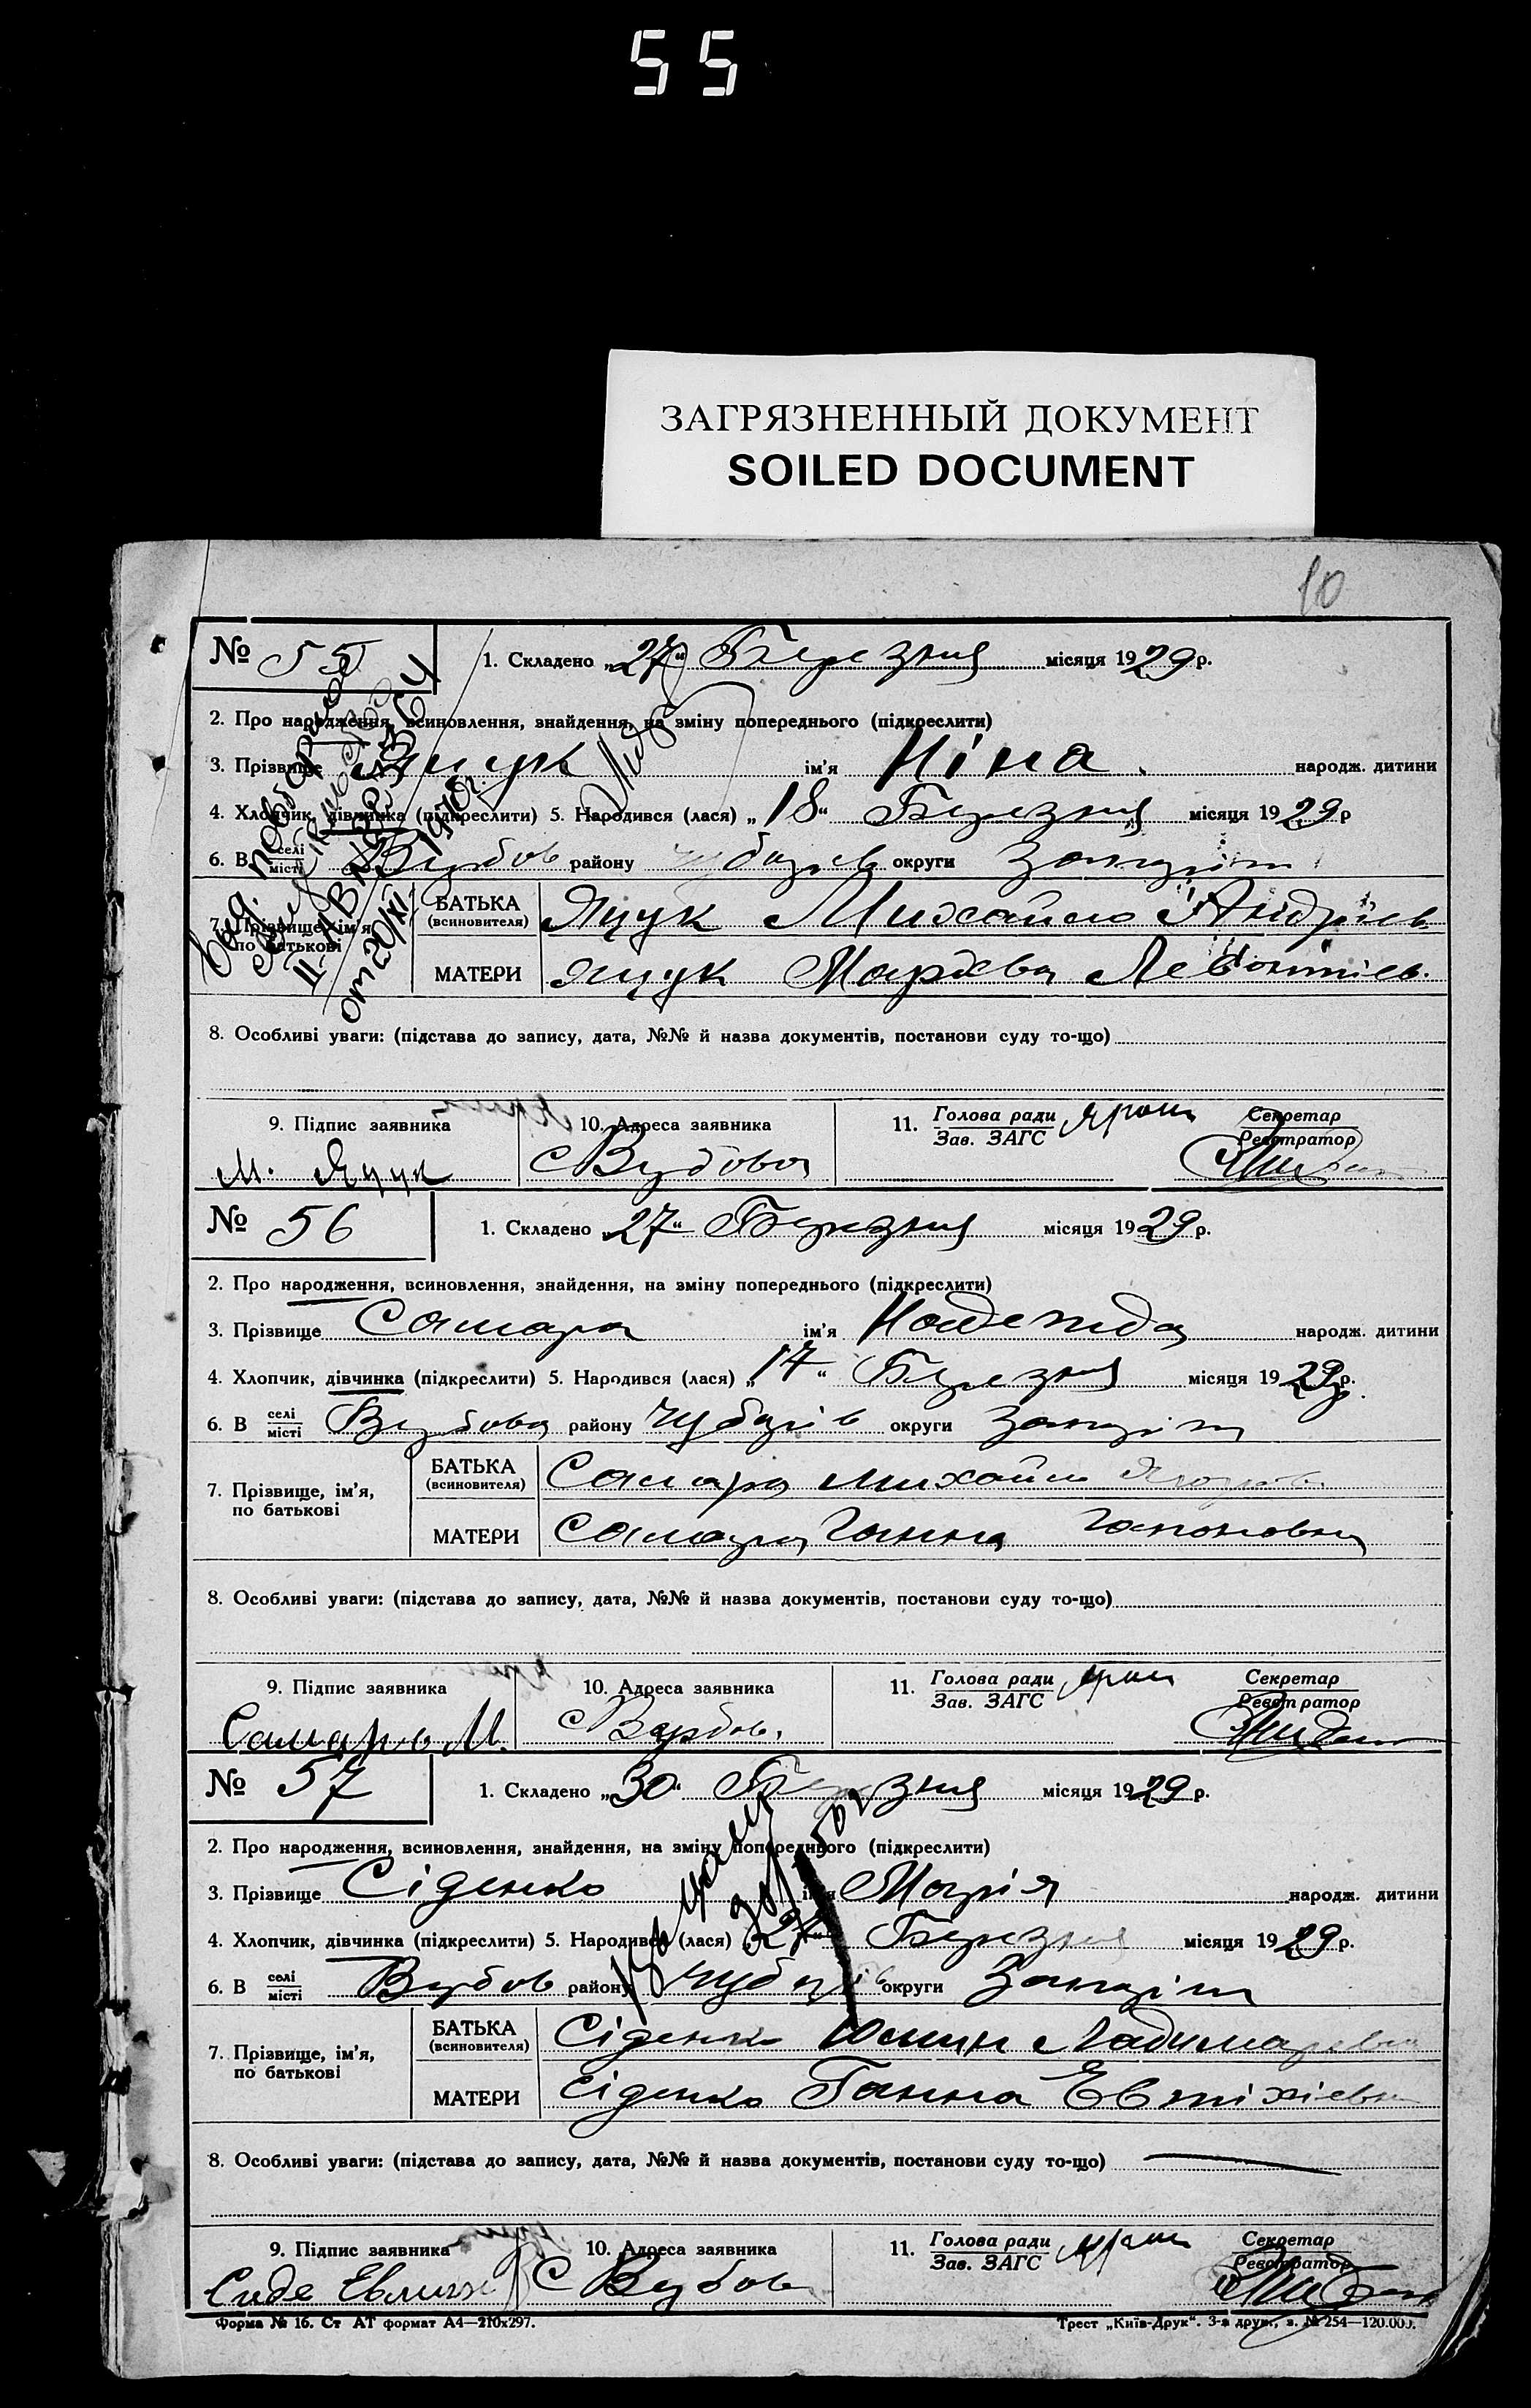 55
ЗАГРЯЗНЕННЫЙ ДОКУМЕНТ
SOILED DOCUMENT
10
№ 55
1. Складено „27“ Березня місяця 1929 р.
2. Про народження, всиновлення, знайдення, на зміну попереднього (підкреслити)
3. Прізвище Яцук ім'я Ніна народж. дитини
4. Хлопчик, дівчинка (підкреслити) 5. Народився (лася) „18“ Березня місяця 1929 р
6. В селі місті Вербов району Чубарів округи Запоріж
7. Прізвище, ім'я, по батькові
БАТЬКА (всиновителя) Яцук Михайло Андріев
МАТЕРИ Яцук Мархва Левонтіев.
8. Особливі уваги: (підстава до запису, дата, №№ й назва документів, постанови суду то-що)
9. Підпис заявника
10. Адреса заявника
11. Голова ради Зав. ЗАГС
Секретар Реєстратор
М. Яцук
с Вербова
№ 56
1. Складено „27“ Березня місяця 1929 р.
2. Про народження, всиновлення, знайдення, на зміну попереднього (підкреслити)
3. Прізвище Самара ім'я Надежда народж. дитини
4. Хлопчик, дівчинка (підкреслити) 5. Народився (лася) „17“ Березня місяця 1929 р.
6. В селі місті Вербова району Чубарів округи Запоріж
7. Прізвище, ім'я, по батькові
БАТЬКА (всиновителя) Самара Михайло
МАТЕРИ Самара Ганна Гапоновна
8. Особливі уваги: (підстава до запису, дата, №№ й назва документів, постанови суду то-що)
9. Підпис заявника
10. Адреса заявника
11. Голова ради Зав. ЗАГС
Секретар Реєстратор
Самара М.
с Вербов.
№ 57
1. Складено „30“ Березня місяця 1929 р.
2. Про народження, всиновлення, знайдення, на зміну попереднього (підкреслити)
3. Прізвище Сіденко ім'я Марія народж. дитини
4. Хлопчик, дівчинка (підкреслити) 5. Народився (лася) „27“ Березня місяця 1929 р.
6. В селі місті Вербов району Чубарів округи Запоріж
7. Прізвище, ім'я, по батькові
БАТЬКА (всиновителя) Сіденко
МАТЕРИ Сіденко Ганна Евтіхіевн
8. Особливі уваги: (підстава до запису, дата, №№ й назва документів, постанови суду то-що)
9. Підпис заявника
10. Адреса заявника
11. Голова ради Зав. ЗАГС
Секретар Реєстратор
с Вербов
Форма № 16. Ст АТ формат А4—210х297.
Трест „Київ-Друк“. 3-я друк., з. № 254—120.000.